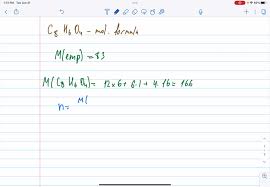 C8 H6 O4 - mol. formula
M(emp) = 83
M(C8 H6 O4) = 12×6 + 6.1 + 4.16 = 166
n = M(